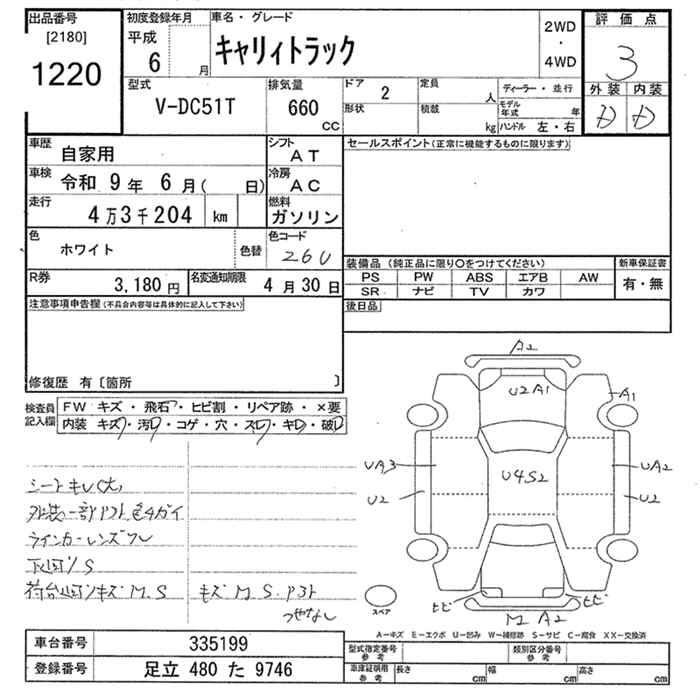 出品番号
[2180]
1220
初度登録年月
平成
6 月
車名・グレード
キャリィトラック
2WD
・
4WD
評価点
3
外装 内装
D D
型式
V-DC51T
排気量
660
cc
ドア 2
形状
定員 人
積載 kg
ディーラー・並行
モデル年式 年
ハンドル 左・右
車歴
自家用
シフト
AT
車検
令和 9年 6月( 日)
冷房
AC
走行
4万3千204 km
燃料
ガソリン
色
ホワイト
色替
色コード
26U
R券
3,180円
名変通知期限
4月30日
注意事項申告欄(不具合内容等は具体的に記入して下さい)
修復歴 有〔箇所 〕
セールスポイント(正常に機能するものに限ります)
装備品(純正品に限り○をつけてください)
PS PW ABS エアB AW
SR ナビ TV カワ
新車保証書
有・無
後日品
検査員記入欄
FW キズ・飛石・ヒビ割・リペア跡・×要
内装 キズ・汚レ・コゲ・穴・スレ・キレ・破レ
シートキレ大
外装一部ペイント色チガイ
ウインカーレンズワレ
下回りS
荷台回りキズM.S
キズM.S.
つやなし
A2
U2A1
A1
UA3
U2
U4S2
UA2
U2
ヒビ
ヒビ
M A2
スペア
A―キズ E―エクボ U―凹み W―補修跡 S―サビ C―腐食 XX―交換済
車台番号
335199
登録番号
足立 480 た 9746
型式指定番号
参考
類別区分番号
参考
車庫証明用
参考
長さ cm
幅 cm
高さ cm